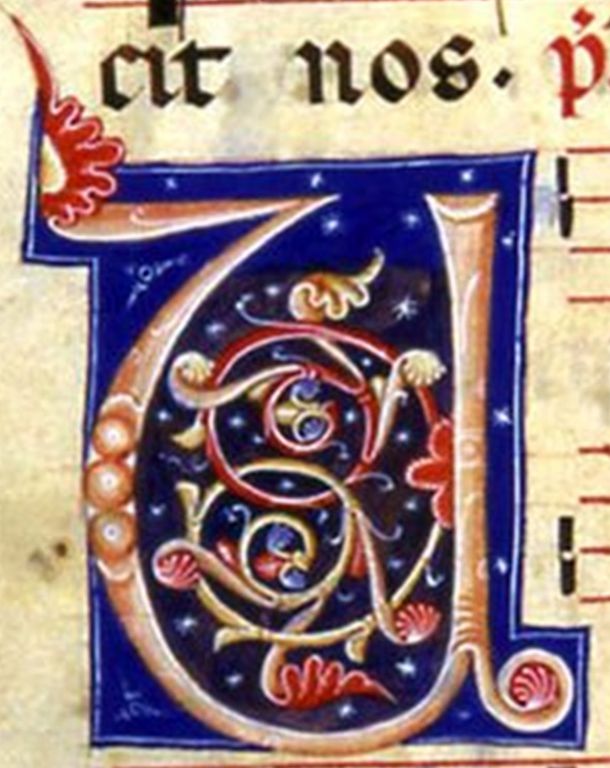 cit nos. p̄
U